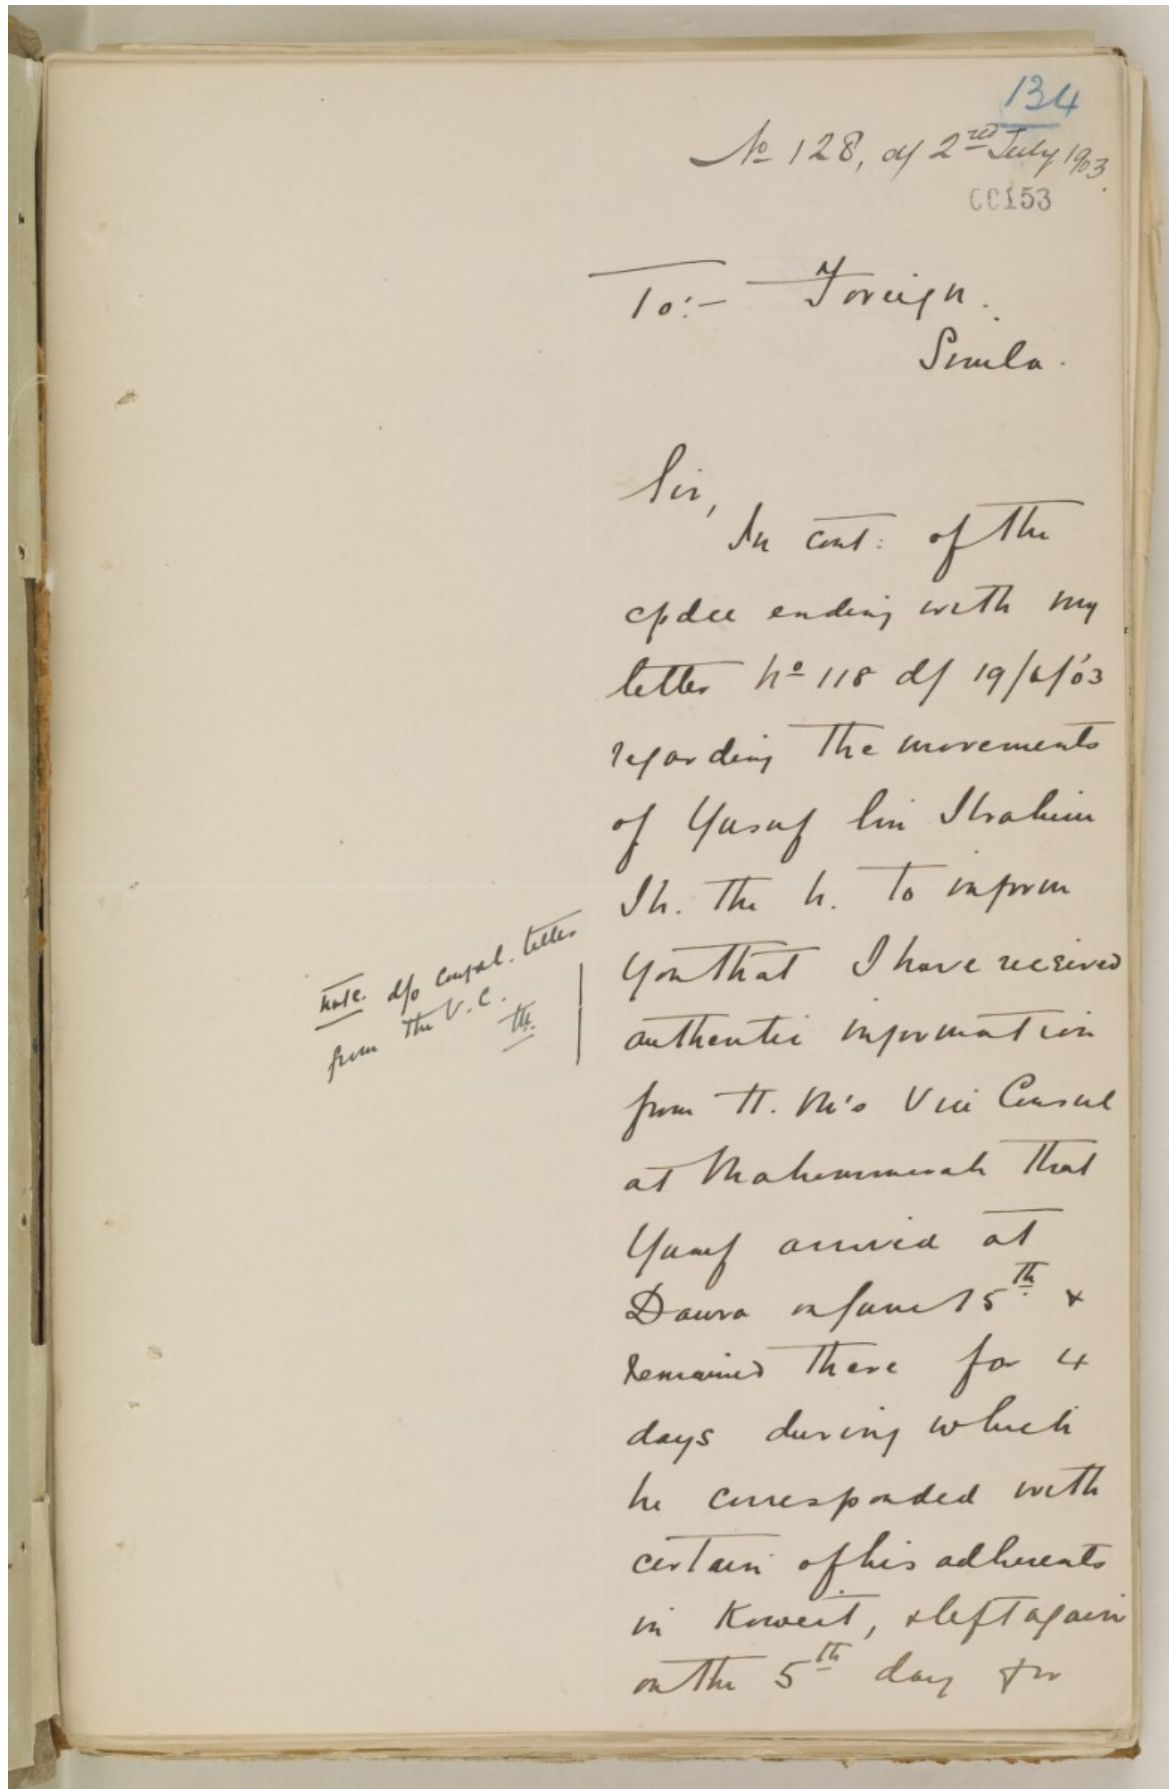 134
No 128, d/ 2nd July 1903.
00153
To:- Foreign.
Simla.
Sir,
In cont: of the
cpdce ending with my
letter No 118 d/ 19/6/'03
regarding the movements
of Yusuf bin Ibrahim
I h. the h. to inform
you that I have received
authentic information
from H. M's Vice Consul
at Mohammerah that
Yusuf arrived at
Dawra on June 15th &
remained there for 4
days during which
he corresponded with
certain of his adherents
in Koweit, & left again
on the 5th day for
Note. d/o Confdl. letter
from the V. C.